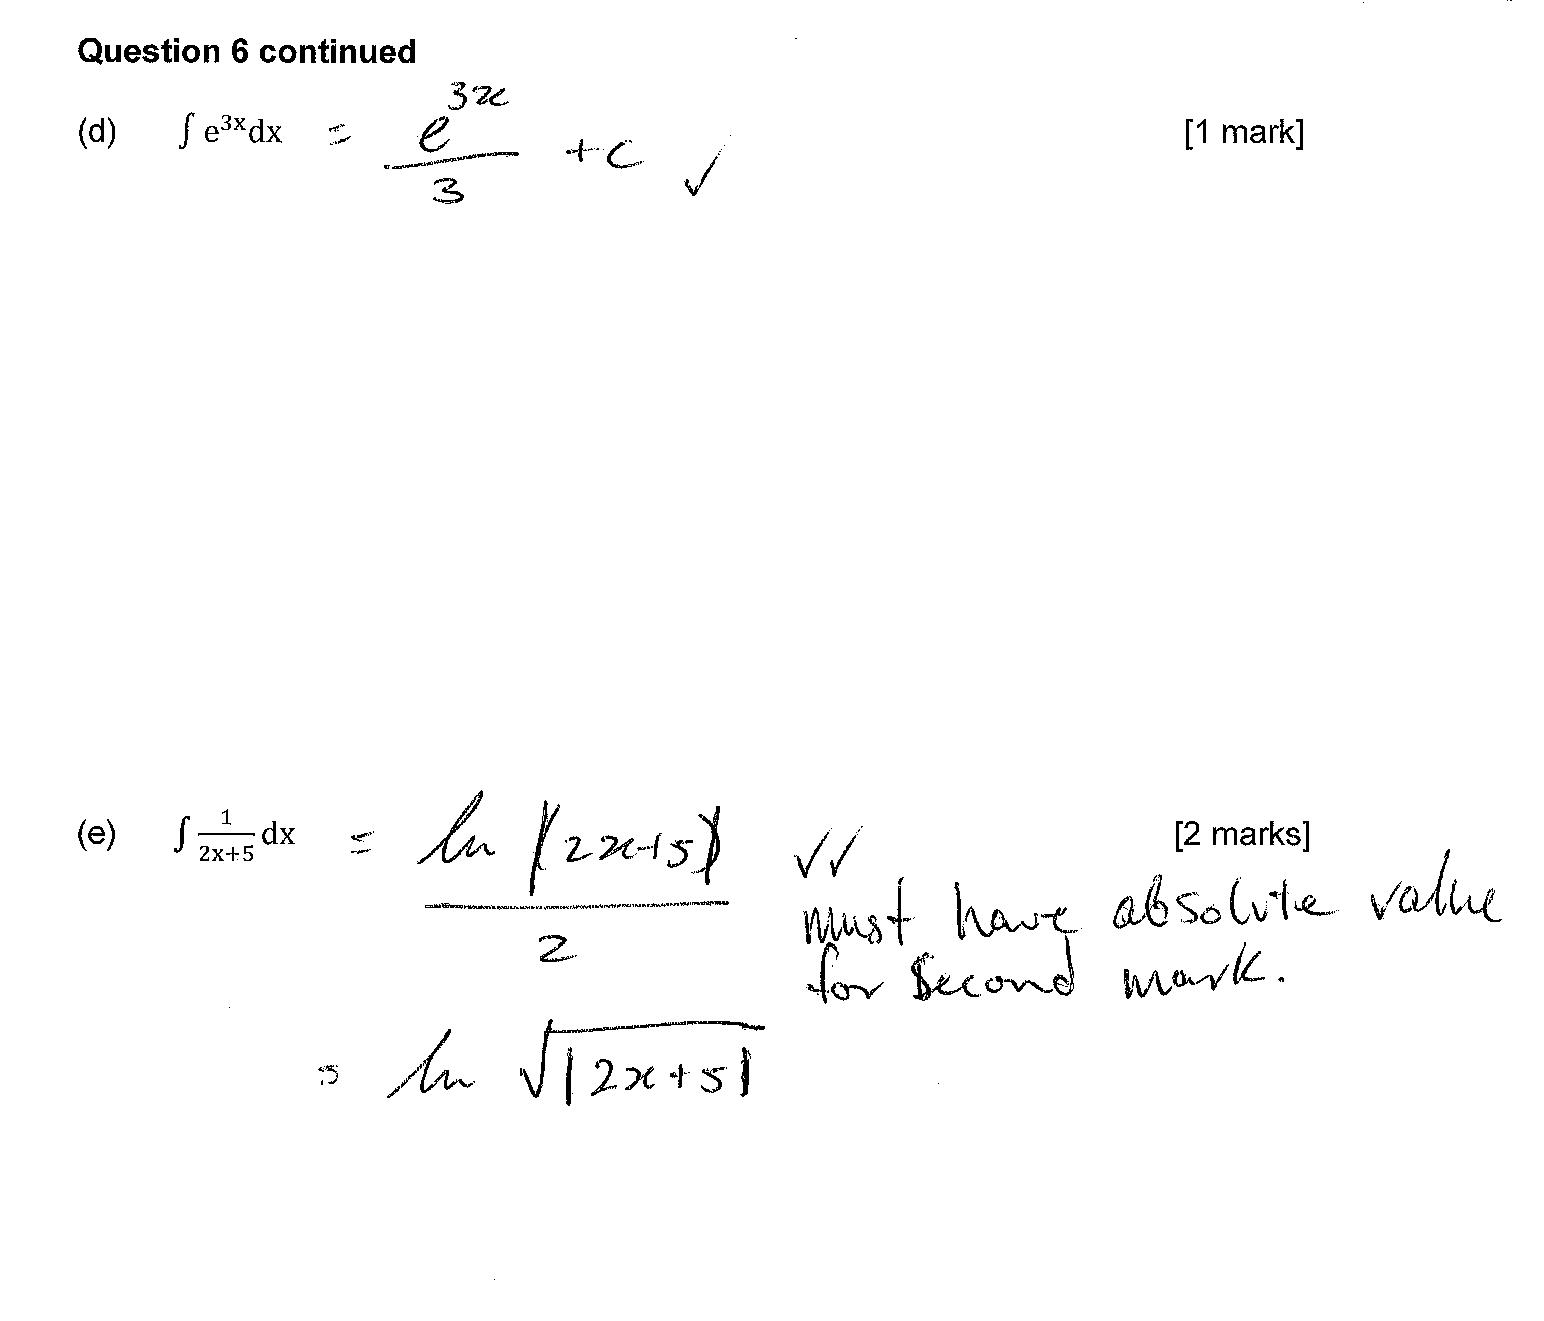 Question 6 continued
(d) ∫ e^{3x} dx = e^{3x}/3 + c ✓ [1 mark]
(e) ∫ 1/(2x+5) dx = ln |2x+5|/2 ✓✓ [2 marks]
must have absolute value
for second mark.
= ln √|2x+5|